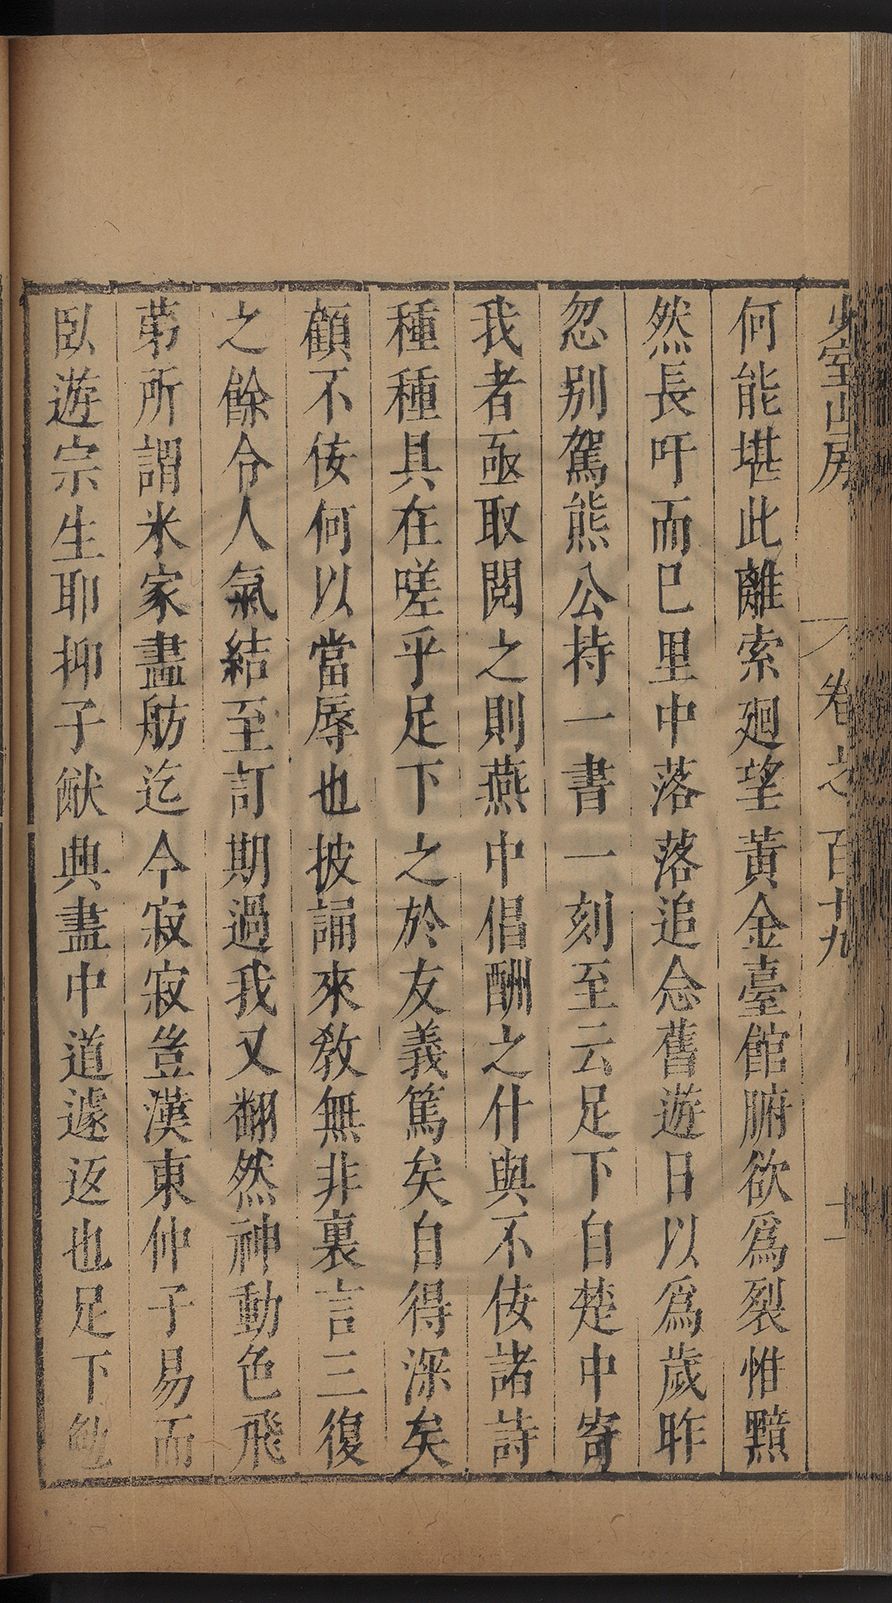 少室山房
卷之百十九
十一
何能堪此離索廻望黃金臺館腑欲爲裂惟黯
然長吁而已里中落落追念舊遊日以爲歲昨
忽別駕熊公持一書一刻至云足下自楚中寄
我者亟取閱之則燕中倡酬之什與不佞諸詩
種種具在嗟乎足下之於友義篤矣自得深矣
顧不佞何以當辱也披誦來教無非裏言三復
之餘令人氣結至訂期過我又翻然神動色飛
苐所謂米家畫舫迄今寂寂豈漢東仲子易而
臥遊宗生耶抑子猷典畫中道遽返也足下勉